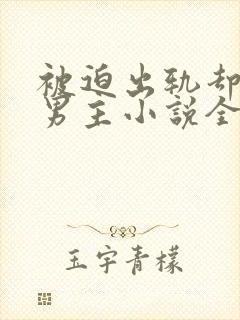 被迫出轨却
男主小説全
玉宇青檬